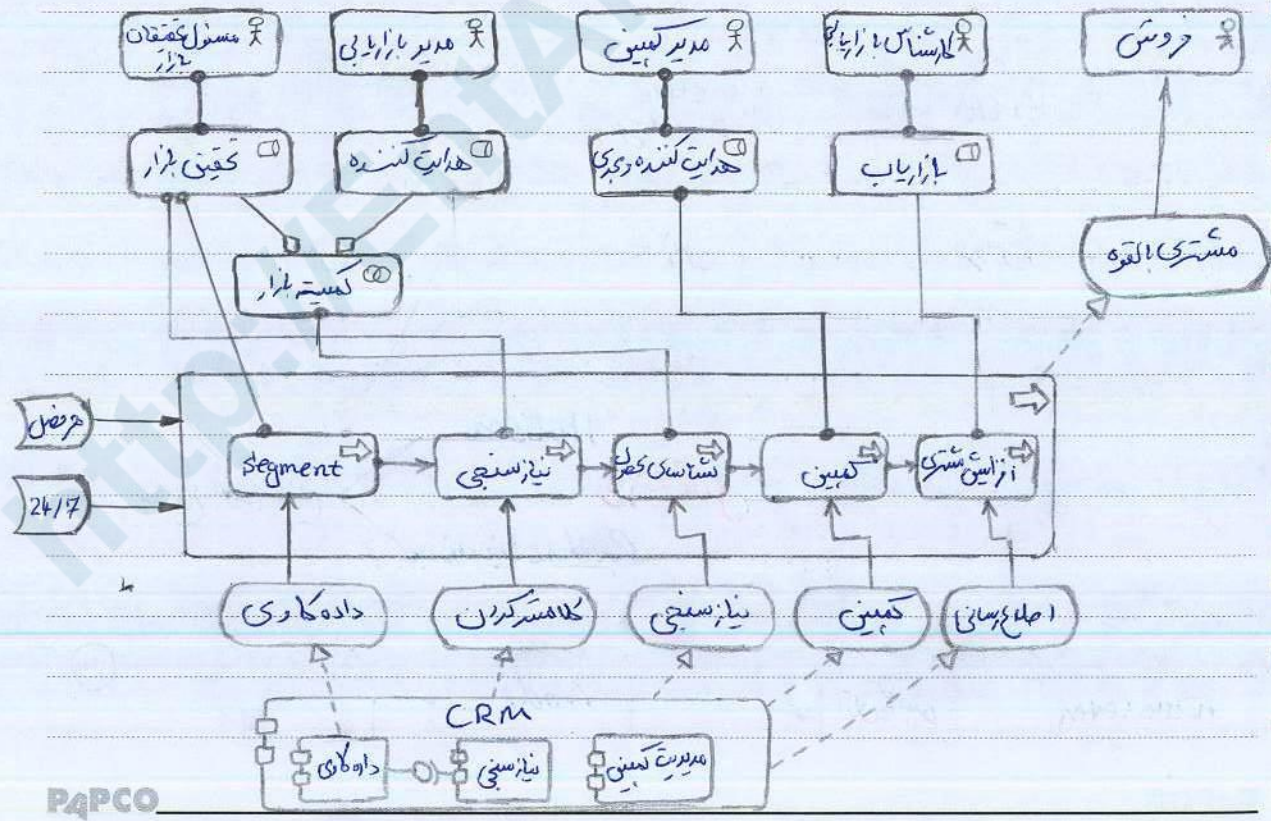 مسئول تحقیقات
بازار
مدیر بازاریابی
مدیر کمپین
کارشناس بازاریابی
فروش
تحقیق بازار
هدایت کننده
هدایت کننده و مجری
بازاریاب
مشتری بالقوه
کمیته بازار
هر فصل
24/7
Segment
نیازسنجی
شناسایی محصول
کمپین
افزایش مشتری
داده کاوی
کلاستر کردن
نیازسنجی
کمپین
اطلاع رسانی
CRM
داده کاوی
نیازسنجی
مدیریت کمپین
PAPCO